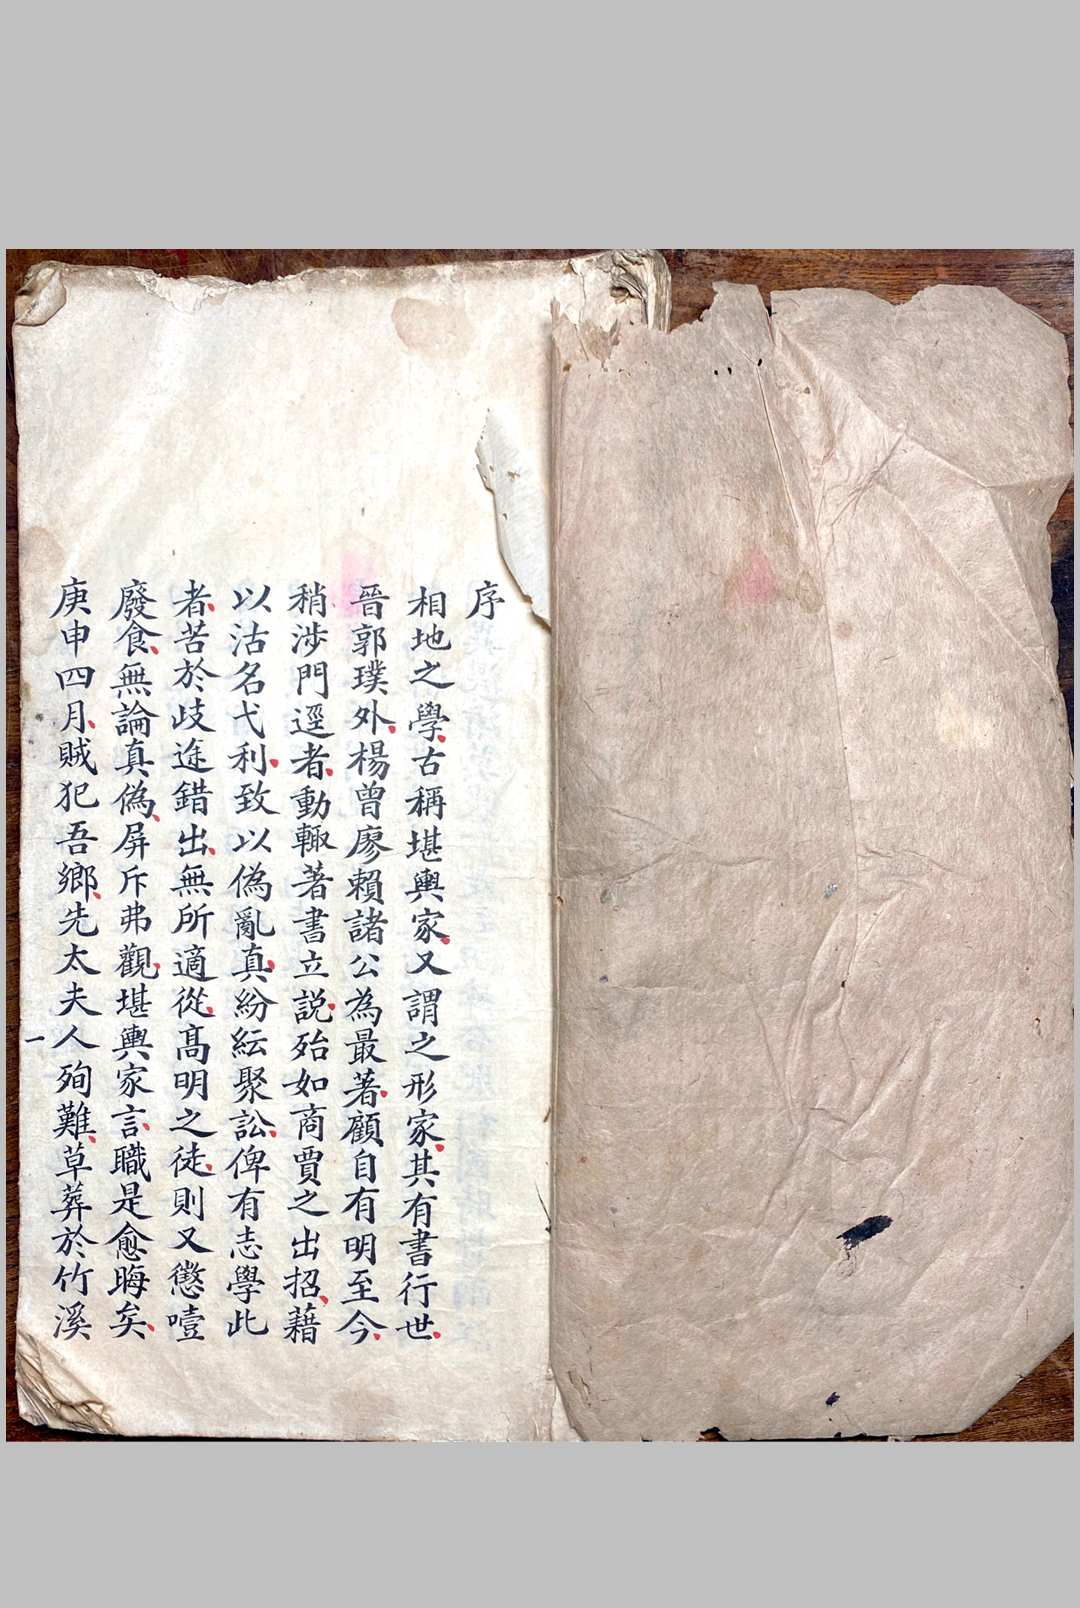 序
相地之學古稱堪輿家又謂之形家其有書行世
晉郭璞外楊曾廖賴諸公為最著顧自有明至今
稍涉門逕者動輙著書立説殆如商賈之出招藉
以沽名弋利致以偽亂真紛紜聚訟俾有志學此
者苦於歧途錯出無所適從髙明之徒則又懲噎
廢食無論真偽屏斥弗觀堪輿家言職是愈晦矣
庚申四月賊犯吾鄉先太夫人殉難草葬於竹溪
一